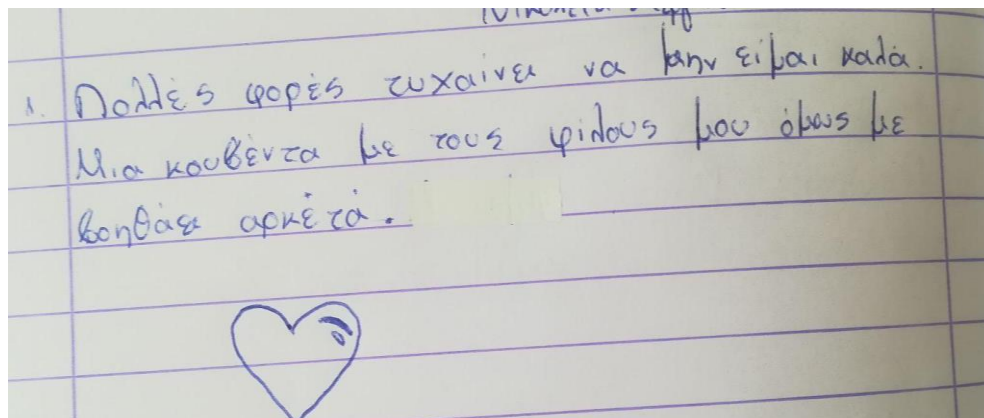 1. Πολλές φορές τυχαίνει να μην είμαι καλά.
Μια κουβέντα με τους φίλους μου όμως με
βοηθάει αρκέτά.